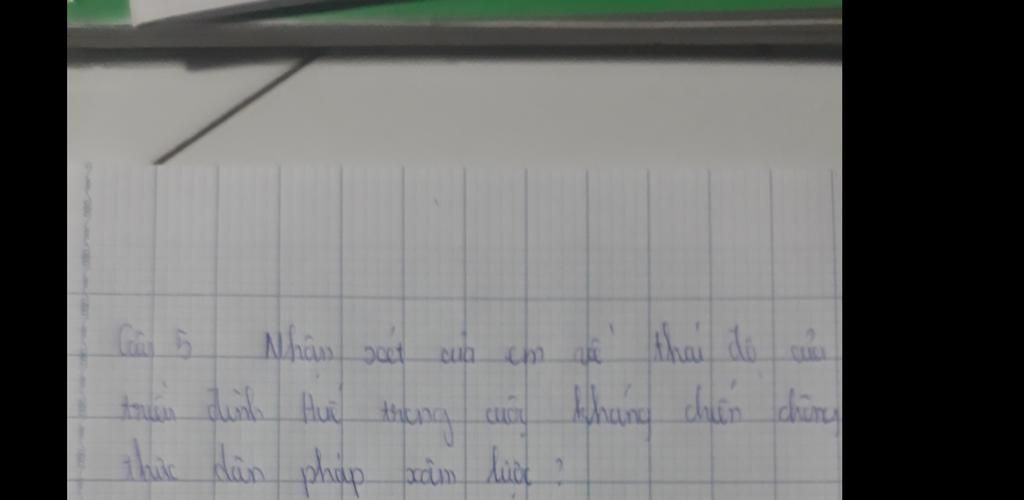 Câu 5 Nhận xét của em về thái độ của
triều đình Huế trong cuộc kháng chiến chống
thực dân pháp xâm lược?